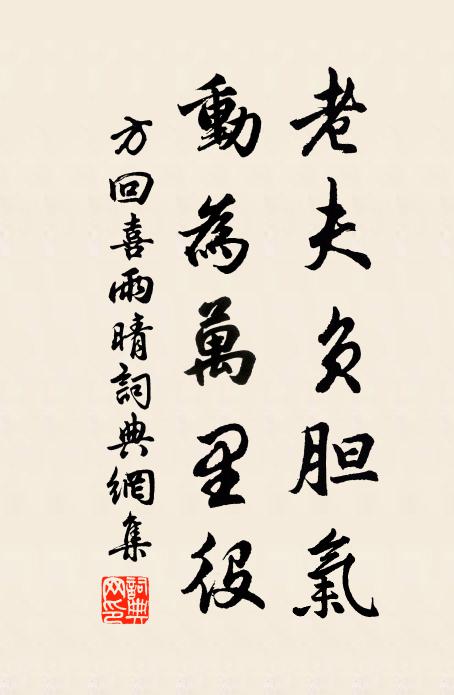 老夫负胆氣
動為萬里役
方回喜雨晴詞典網集
詞典網印